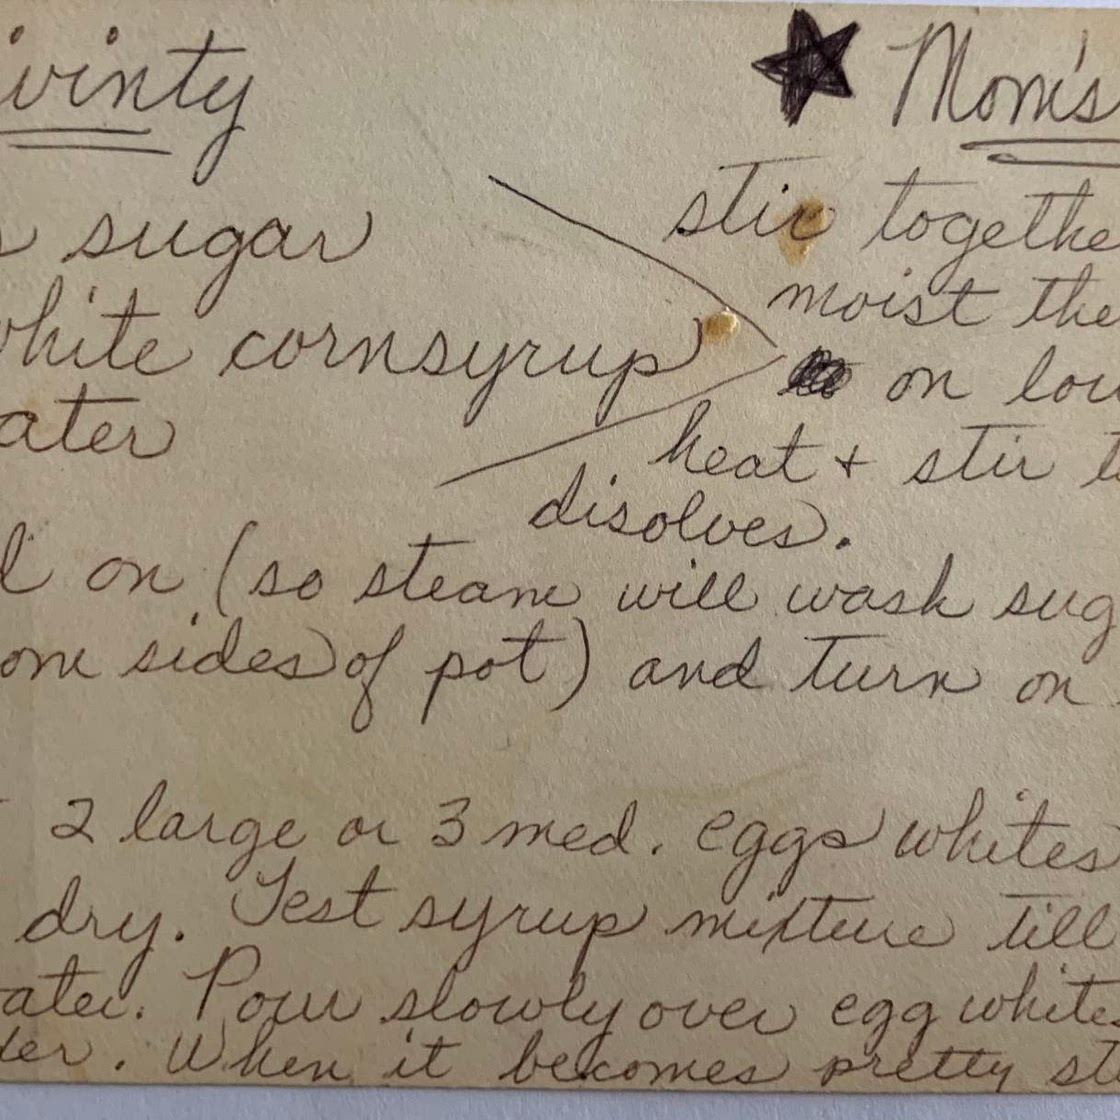 ivinty Mom's
s sugar stir togethe
white cornsyrup moist the
ater on low
heat + stir t
disolves.
d on (so steam will wash sug
om sides of pot) and turn on
2 large or 3 med. eggs whites
dry. Test syrup mixture till
ater. Pour slowly over egg white
der. When it becomes pretty sti